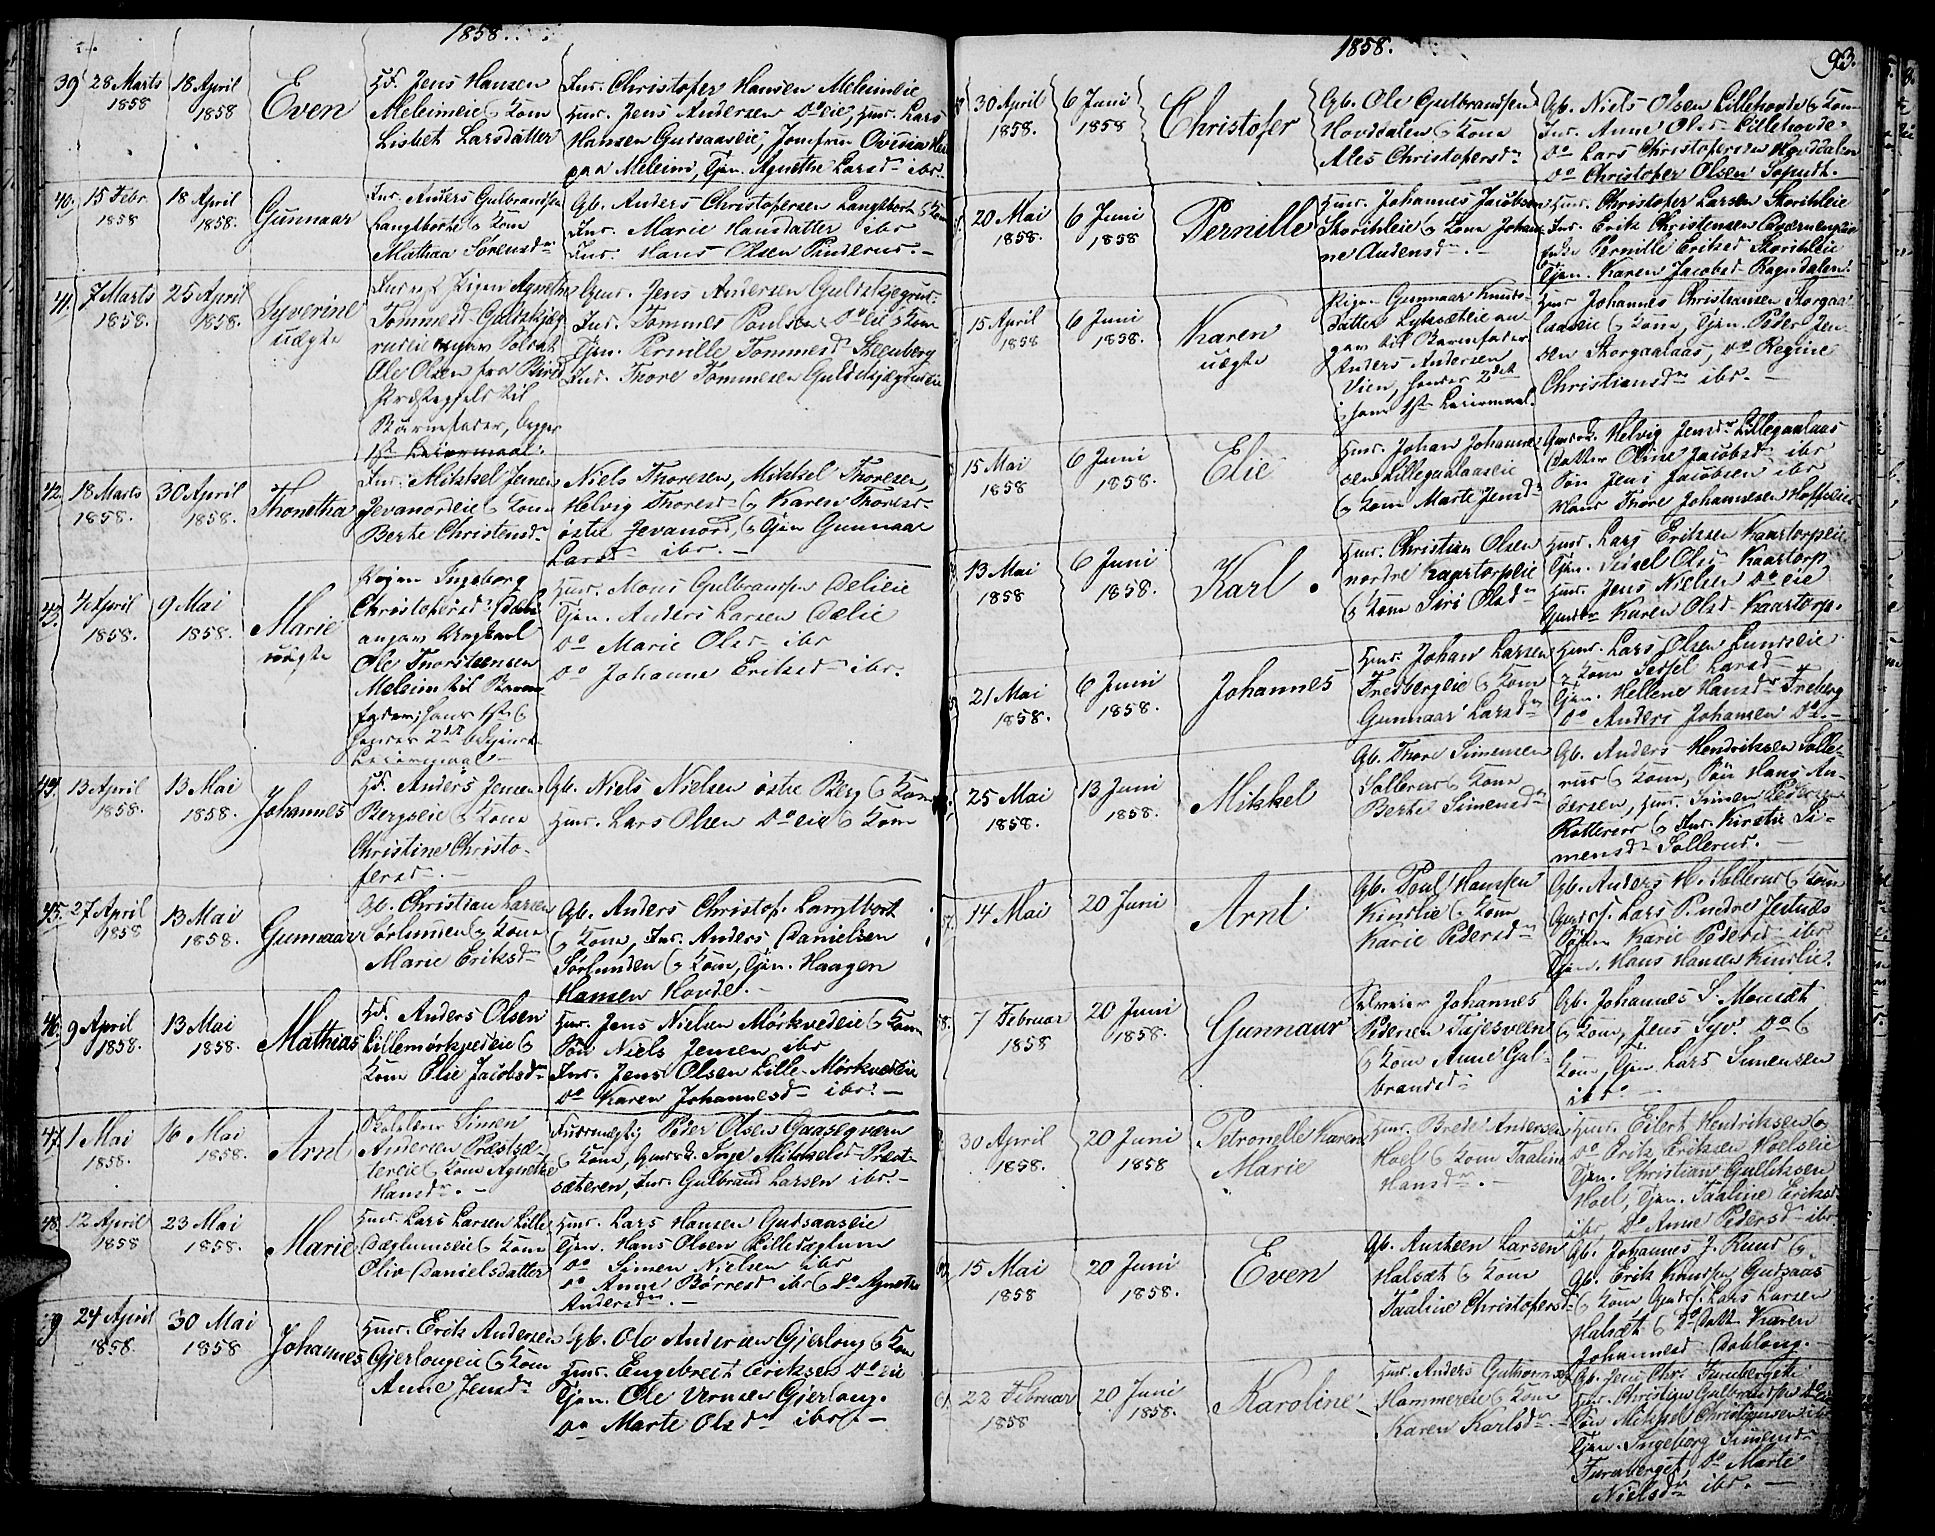 1858.
39 28 Marts 1858 18 April 1858 Even
Hd. Jens Hansen
Meleimeie & Kone
Lisbet Larsdatter
Ins. Christofer Hansen Meleimeie
Huus. Jens Andersen Do eie, Huus. Lars
Hansen Gudsaaseie, Jomfru Ovidia
paa Meleim, Tjen. Agnethe Larsd. ibr.
40. 15 Febr. 1858 18 April 1858. Gunnaar
Ins. Anders Gulbrandsen
Langtborte & Kone
Mathea Sørensdr
Gb. Anders Christofersen Langtbort & Kone
Ins. Marie Hansdatter ibr
Ins. Hans Olsen Panderud. -
41. 7 Marts 1858. 25 April 1858. Syverine uægte
Pigen Agnethe
Tommesd Guldskjæg
rudeie angav Soldat
Ole Olsen fra Biri
Præstegjeld til
Barnefader, begges
1ste Leiermaal.
Huus. Jens Andersen Guldskjegrud.
Ins. Tommes Poulsen Do eie & Kone
Tjen. Pernille Tommesd Steenberg
Ins. Thore Tommesen Guldskjægrudeie
42. 18 Marts 1858. 30 April 1858. Thonetha
Ins. Mikkel Jensen
Jevanordeie & Kone
Berthe Christensdr
Niels Thoresen, Mikkel Thoresen,
Helvig Thoresd. & Karen Thoresd.
østre Jevanord, & Tjen Gunnaar
Larsd. ibr. -
43. 4 April 1858. 9 Mai 1858. Marie uægte
Pigen Ingeborg
Christofersd. Dæli
angav Ungkarl
Ole Thorstensen
Meleim til Barne
fader; hans 1ste &
hendes 2det
Leiermaal
Huus. Mons Gulbrandsen Dælieie
Tjen. Anders Larsen Dælie
Do Marie Olsd ibr
Do Johanne Eriksd. ibr.
44. 13 April 1858. 13 Mai 1858. Johannes
Hd. Anders Jensen
Bergseie & Kone
Christine Christo-
fersd. -
Gb. Niels Nielsen østre Berg & Kone
Huus. Lars Olsen Do eie & Kone
45. 27 April 1858 13 Mai 1858. Gunnaar
Gb. Christian Larsen
Sørlunden & Kone
Marie Eriksdr
Gb. Anders Christof. Langtbort
& Kone, Ins. Anders Danielsen
Sørlunden & Kone, Tjen. Haagen
Hansen Hovde. -
46. 9 April 1858. 13 Mai 1858. Mathias
Hd. Anders Olsen
Lillemørkvedeie &
Kone Olie Jacobsdr
Huus. Jens Nielsen Mørkvedeie & Kone
Søn Niels Jensen ibr
Ins. Jens Olsen Lille Mørkvedeie
Do Karen Johannesd. ibr. -
47. 1 Mai 1858. 16 Mai 1858. Arnt
Skolelærer Simen
Andersen Præstsæ-
tereie & Kone Agnethe
Hansdr. -
Peder Olsen Gaasegværn
& Kone, Inge Mikkelsd Præst-
sæteren, Ins. Gulbrand Larsen ibr. -
48. 12 April 1858 23 Mai 1858. Marie
Huus. Lars Larsen Lille
Dæglumseie & Kone
Olive Danielsdatter
Huus. Lars Hansen Gudsaaseie
Tjen. Hans Olsen Lilledæglum
Do Simen Nielsen ibr
Do Anne Børresd ibr & Do Agnethe
Andersdr. -
24 April 1858. 30 Mai 1858 Johannes
Huus. Erik Andersen
Gjerlougeie & Kone
Anne Jensdr
Gb. Ole Andersen Gjerloug & Kone
Huus. Engebret Eriksen Do eie
Tjen. Ole Gjerloug.
Do Marte Olsdr ibr. -
1858.
93.
30 April 1858. 6 Juni 1858 Christofer
Gb. Ole Gulbrandsen
Hovddalen & Kone
Ales Christofersdr
Gb. Niels Olsen Lillehovde & Kone
Ins. Anne Olsd. Lillehovde
Do Lars Christofersen Hovddalen
Do Christofer Olsen Sopudt.
20 Mai 1858. 6 Juni 1858 Pernille
Huus. Johannes Jacobsen
Skorihleie & Kone Johan
ne Audensdr. -
Huus. Christofer Larsen Skorihleie
Ins. Erik Christensen
Pernille Eriksd Skorihleie
Tjen. Karen Jacobsd.
15 April 1858 6 Juni 1858. Karen uægte
Pigen Gunnaar Knuds-
datter an-
gav til Barnefader
Anders Andersen
Vien, hendes 2det
hans 1ste Leiermaal.
Huus Johannes Christiansen Storgaa-
laaseie & Kone, Tjen. Peder Jen-
sen Storgaalaas, Do Regine
Christiansdr ibr. -
15 Mai 1858 6 Juni 1858. Elie
Huus. Johan Johanne-
sen Lillegaalaaseie
& Kone Marte Jensdr
Helvig Jensdr Lillegaalaas
Datter Oline Jacobsd. ibr
Søn Jens Jacobsen ibr
Thore Johannesen
13 Mai 1858 6 Juni 1858. Karl.
Huus. Christian Olsen
nordre Kaartorpeie
& Kone Siri Olsdr
Huus. Lars Eriksen Kaartorpeie
Tjen. Sidsel Olsdr Kaartorp
Huus. Jens Nielsen Do eie
Karen Olsd Kaartorp.
21 Mai 1858. 6 Juni 1858. Johannes
Huus. Johan Larsen
Fredbergeie & Kone
Gunnaar Larsdr
Huus. Lars Olsen Lundseie
& Kone Sidsel Larsd.
Tjen. Hellene Hansdr Freberg
Do Anders Johansen Do. -
25 Mai 1858. 13 Juni 1858. Mikkel
Gb. Thor Simensen
Sollerud & Kone
Berthe Simensdr
Gb. Anders Hendriksen Solle-
rud & Kone, Søn Hans An-
dersen, Huus. Simen Pedersen
& Ins. Kirstie Si-
mensdr Sollerud. -
14 Mai 20 Juni Arnt
Gb. Poul Hansen
Kindlie & Kone
Karie Pedersdr
Gb. Anders H. Sollerud & Kone
Lars P. nedre
Karie Pedersd. ibr
Tjen. Hans Hansen Kindlie.
7 Februar 1858 20 Juni 1858. Gunnaur
Selveier Johannes
Pedersen Tajesveen
& Kone Anne Gul-
brandsdr
Gb. Johannes S. Monsæt
& Kone, Jens Syv. Do &
Kone, Tjen. Lars Simensen
ibr. -
30 April 1858. 20 Juni 1858 Petronelle Karen Marie
Huus. Brede Andersen
Hoel & Kone Taaline
Hansdr. -
Huus. Eilert Hendriksen &
Do Erik Eriksen Hoelseie
Tjen. Christian Gulliksen
Hoel, Tjen. Taaline Eriksd
ibr Do Anne Pedersd. ibr
15 Mai 1858 20 Juni 1858. Even
Gb. Austeen Larsen
Halsæt & Kone
Taaline Christofersdr
Gb. Johannes J. Ruud &
Gb. Erik Knudsen Gudsaas
& Kone Lars Larsen
Halsæt & Karen
Johannesd. Dobloug. -
61. 22 Februar 1858 20 Juni 1858. Karoline
Huus. Anders Guthormsen
Hammereie & Kone
Karen Karlsdr. -
Gb. Jens Chr. Furuberget
Huus. Christian Gulbrandsen Do
Søn Mikkel Christiansen ibr
Tjen. Ingeborg Simensdr
Furuberget, Do Marte
Nielsdr ibr. -